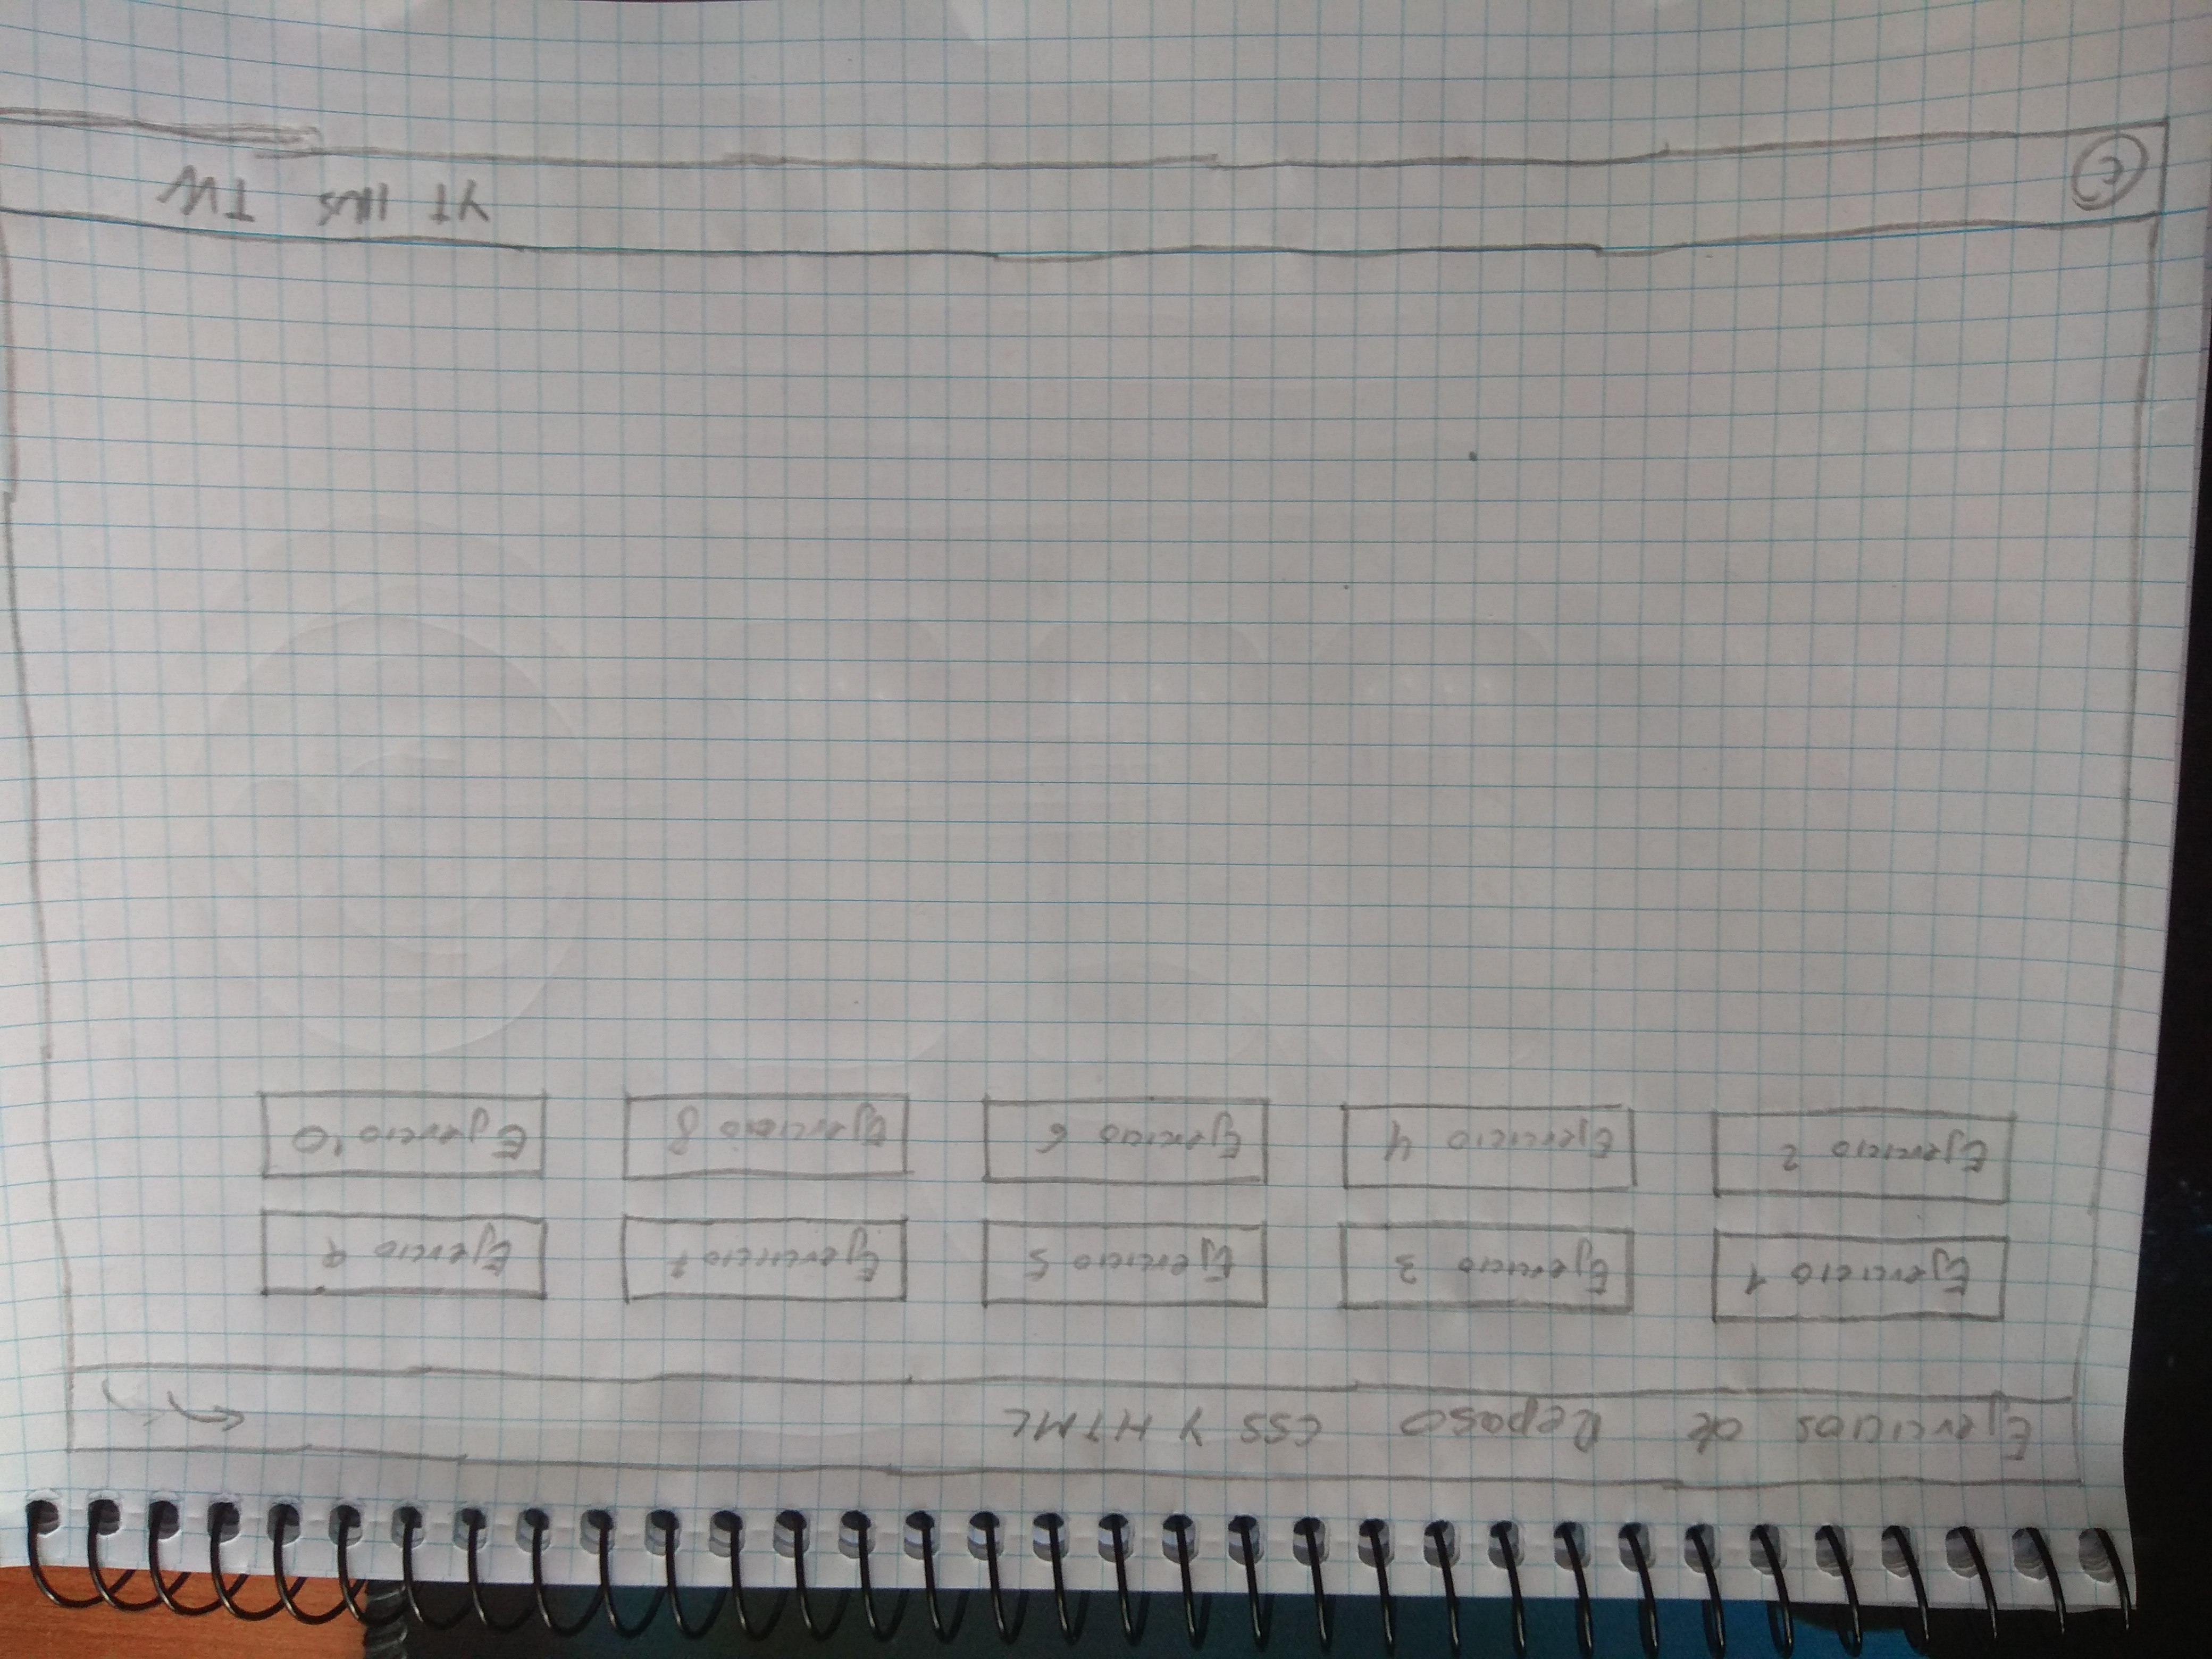 Ejercicios de Repaso CSS Y HTML
Ejercicio 1 Ejercicio 3 Ejercicio 5 Ejercicio 7 Ejercio 9
Ejercicio 2 Ejercicio 4 Ejercicio 6 Ejercicio 8 Ejercio 10
© YT INS TW